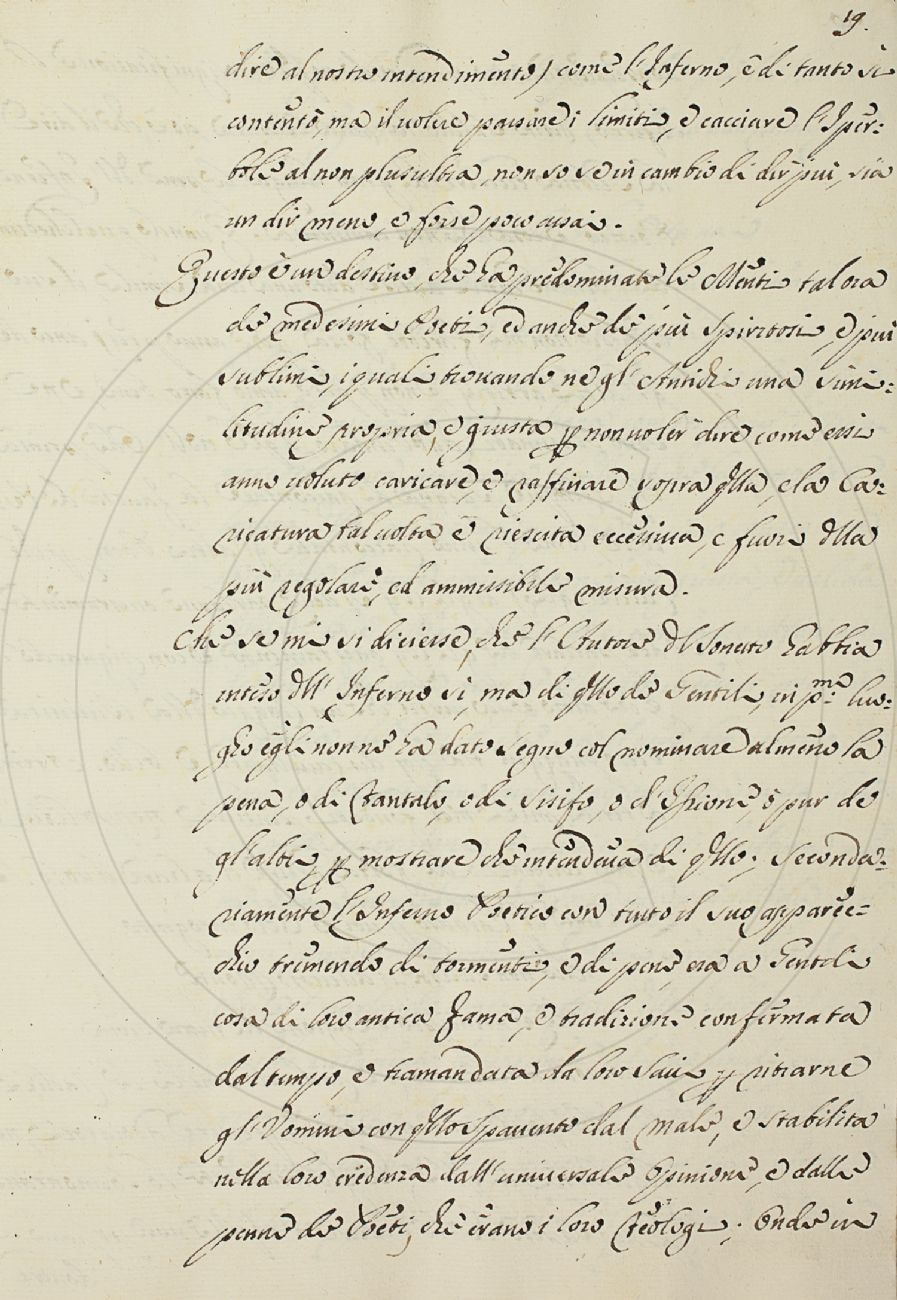 19.
dire al nostro intendimento) come l'Inferno, è di tanto si
contentò, ma il volere passare i limiti, e cacciare l'Iper-
bole al non plus ultra, non so se in cambio di dir più, sia
un dir meno, e forse poco assai.
Questo è un destino, che ha predominate le Menti talora
de medesimi Poeti, ed anche de più Spiritosi, e più
sublimi, i quali trovando ne gl'Antichi una simi-
litudine propria, e giusta p non voler dire come essi
anno voluto caricare, e raffinare sopra qlla, e la Ca-
ricatura talvolta è riescita eccessiva, e fuori dlla
più regolare, ed ammissibile misura.
Che se mi si dicesse, che l'Autore dl Soneto habbia
inteso dll' Inferno sì, ma di qllo de Gentili, in p.mo luo-
gho egli non ne ha dato segno col nominare almeno la
pena, o di Tantalo, o di Sisifo, o d'Issione, o pur de
gl'altri, p mostrare che intendeva di qllo; seconda-
riamente l'Inferno Poetico con tutto il suo apparec-
chio tremendo di tormenti, e di pene, era a Gentili
cosa di loro antica Fama, e tradizione confermata
dal tempo, e tramandata da loro Savi p ritrarne
gl'Uomini con qllo Spavento dal male, e stabilita
nella loro credenza dall'universale Opinione, e dalle
penne de Poeti, che erano i loro Teologi; Onde in